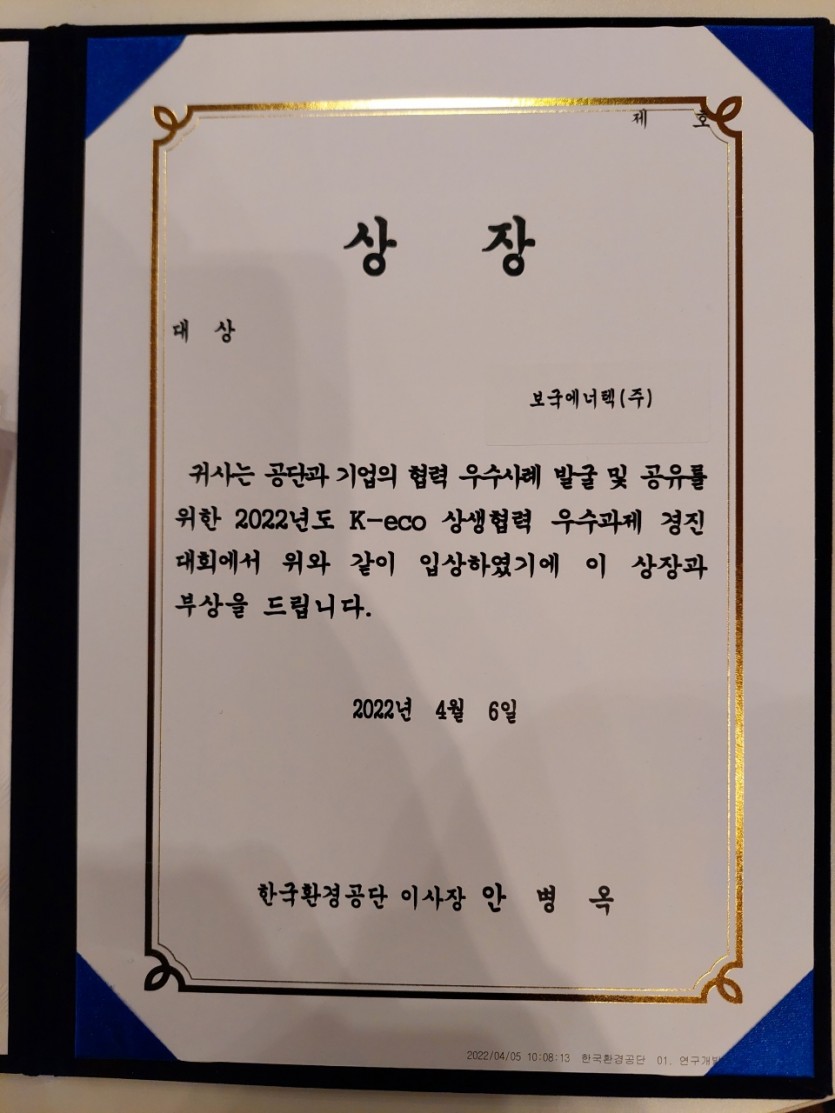 제 호
상 장
대 상
보국에너텍(주)
귀사는 공단과 기업의 협력 우수사례 발굴 및 공유를
위한 2022년도 K-eco 상생협력 우수과제 경진
대회에서 위와 같이 입상하였기에 이 상장과
부상을 드립니다.
2022년 4월 6일
한국환경공단 이사장 안 병 옥
2022/04/05 10:08:13 한국환경공단 01. 연구개발